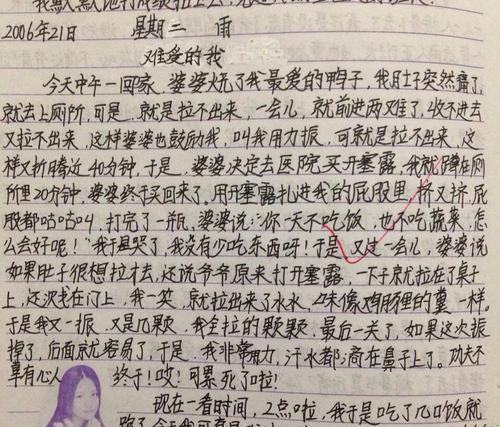 我默默地
2006年21日 星期二 雨
难受的我
今天中午一回家,婆婆烧了我最爱的鸭子,我肚子突然痛了,
就去上厕所,可是,就是拉不出来,一会儿,就前进两难了,收不进去
又拉不出来,这样婆婆也鼓励我,叫我用力振,可就是拉不出来,这
样又折腾近40分钟,于是,婆婆决定去医院买开塞露,我就蹲在厕
所里20分钟,婆婆终于买回来了。用开塞露扎进我的屁股里,挤又挤,屁
股都咕咕叫,打完了一瓶,婆婆说:你一天不吃饭,也不吃蔬菜,怎
么会好呢!我于是哭了,我没有少吃东西呀!于是,又过一会儿,婆婆说
如果肚子很想拉才去,还说爷爷原来打开塞露,一下子就拉在桌子
上,还次拉在门上,我一笑,就拉出来了水水,味像鸡屁里的粪一样。
于是我又一振,又是几颗,我全拉的颗颗,最后一关了,如果这次振
掉了,后面就容易了,于是,我非常用力,汗水都滴在鼻子上了。功夫不
辜有心人 终于!哎!可累死了啦!
现在一看时间,2点啦,我于是吃了几口饭就